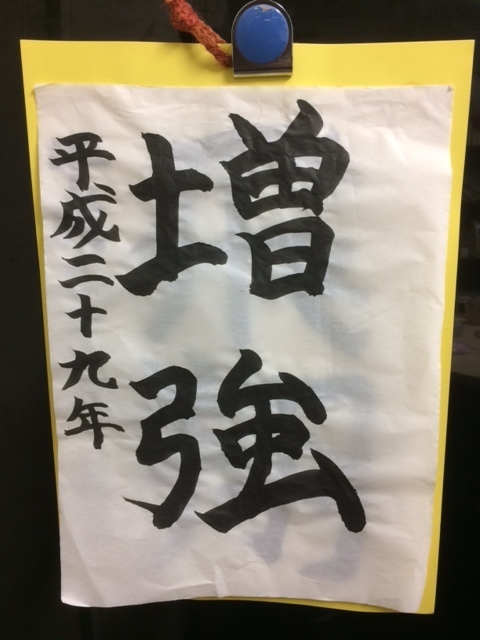 増強
平成二十九年